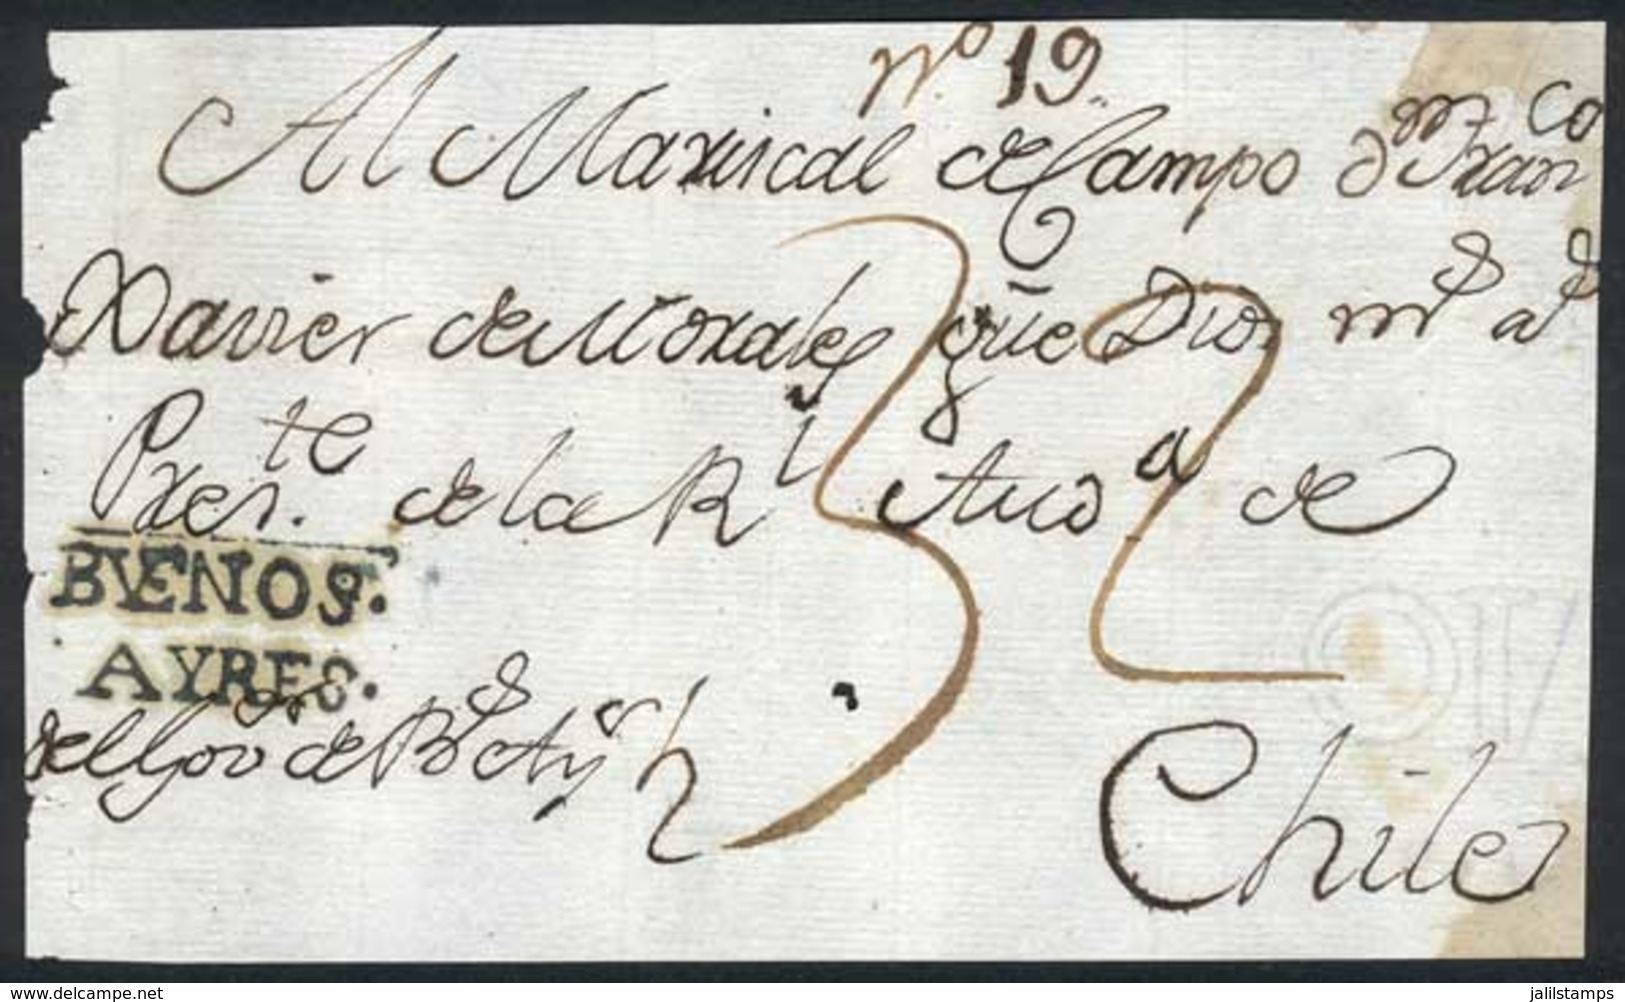 nº 19.
Al Mariscal de Campo Dn. Franco
Xavier de Morales que Dios m.s a.s
Preste. de la Rl Auda de
BVENOS.
AYRES.
del Govor de Bs Ays
32
Chile
www.delcampe.net
jalilstamps